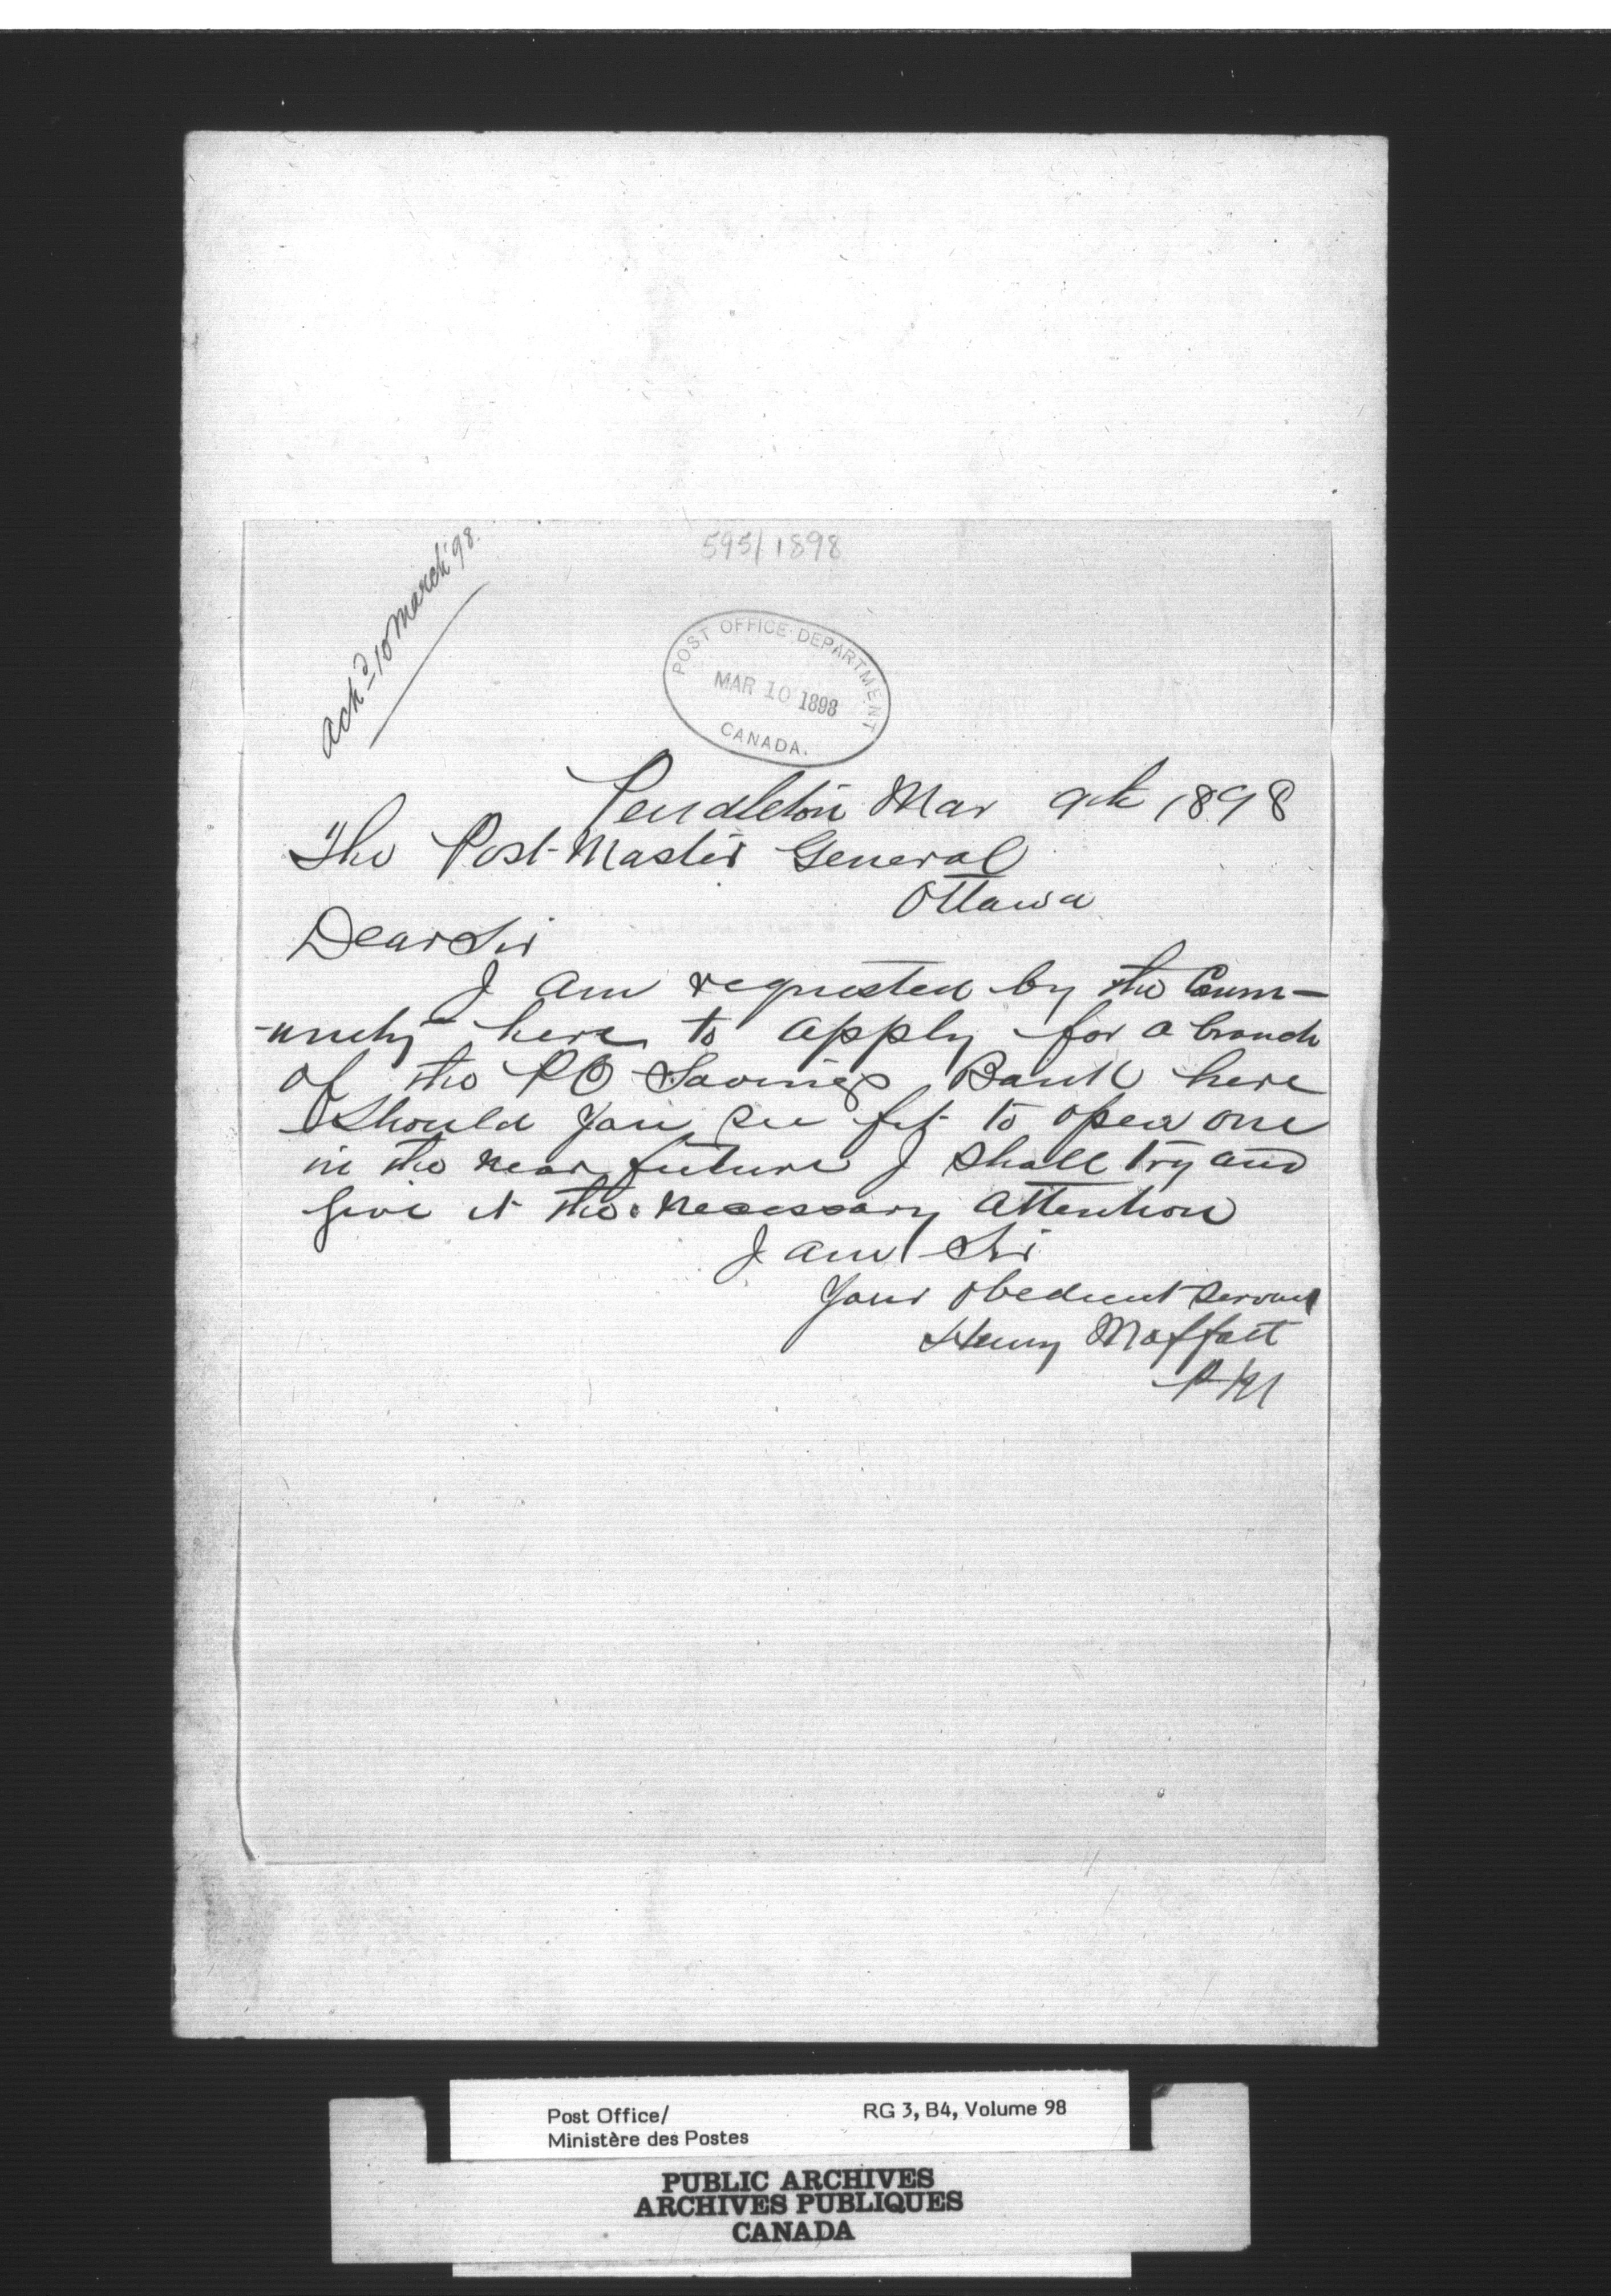 595/1898
ackd 10 March '98.
POST OFFICE DEPARTMENT
MAR 10 1898
CANADA.
Pendleton Mar 9th 1898
The Post-Master General
Ottawa
Dear Sir
I am requested by the Comm-
-unity here to apply for a branch
of the PO Savings Bank here
Should you see fit to open one
in the near future I shall try and
give it the necessary attention
I am Sir
Your obedient servant
Henry Moffatt
P M
Post Office/
Ministère des Postes
RG 3, B4, Volume 98
PUBLIC ARCHIVES
ARCHIVES PUBLIQUES
CANADA